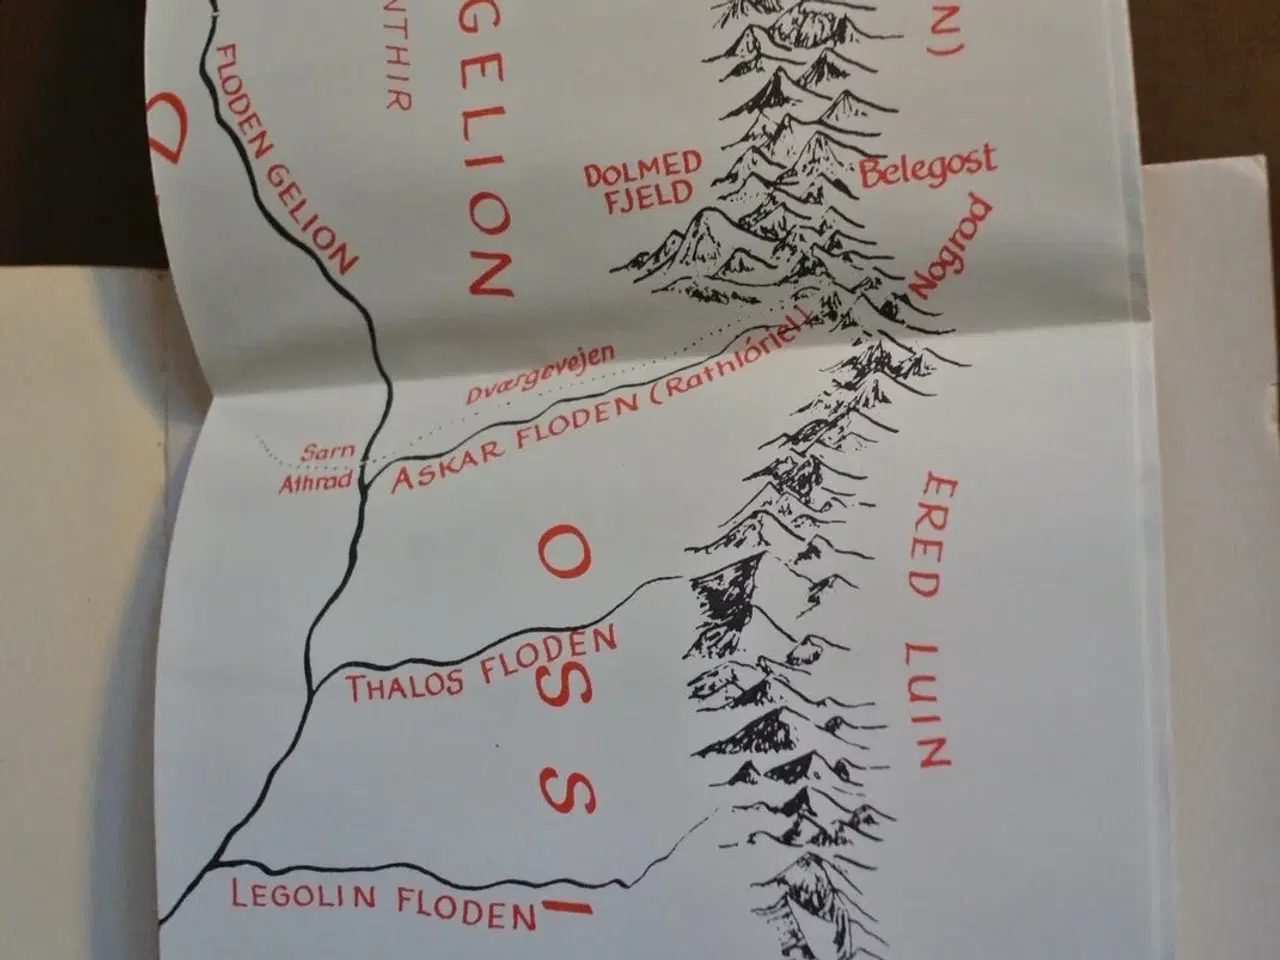 NTHIR
GELION
N)
FLODEN GELION
D
DOLMED
FJELD
Belegost
Nogrod
Dværgevejen
ASKAR FLODEN (Rathlóriel)
Sarn
Athrad
OSSI
ERED LUIN
THALOS FLODEN
LEGOLIN FLODEN